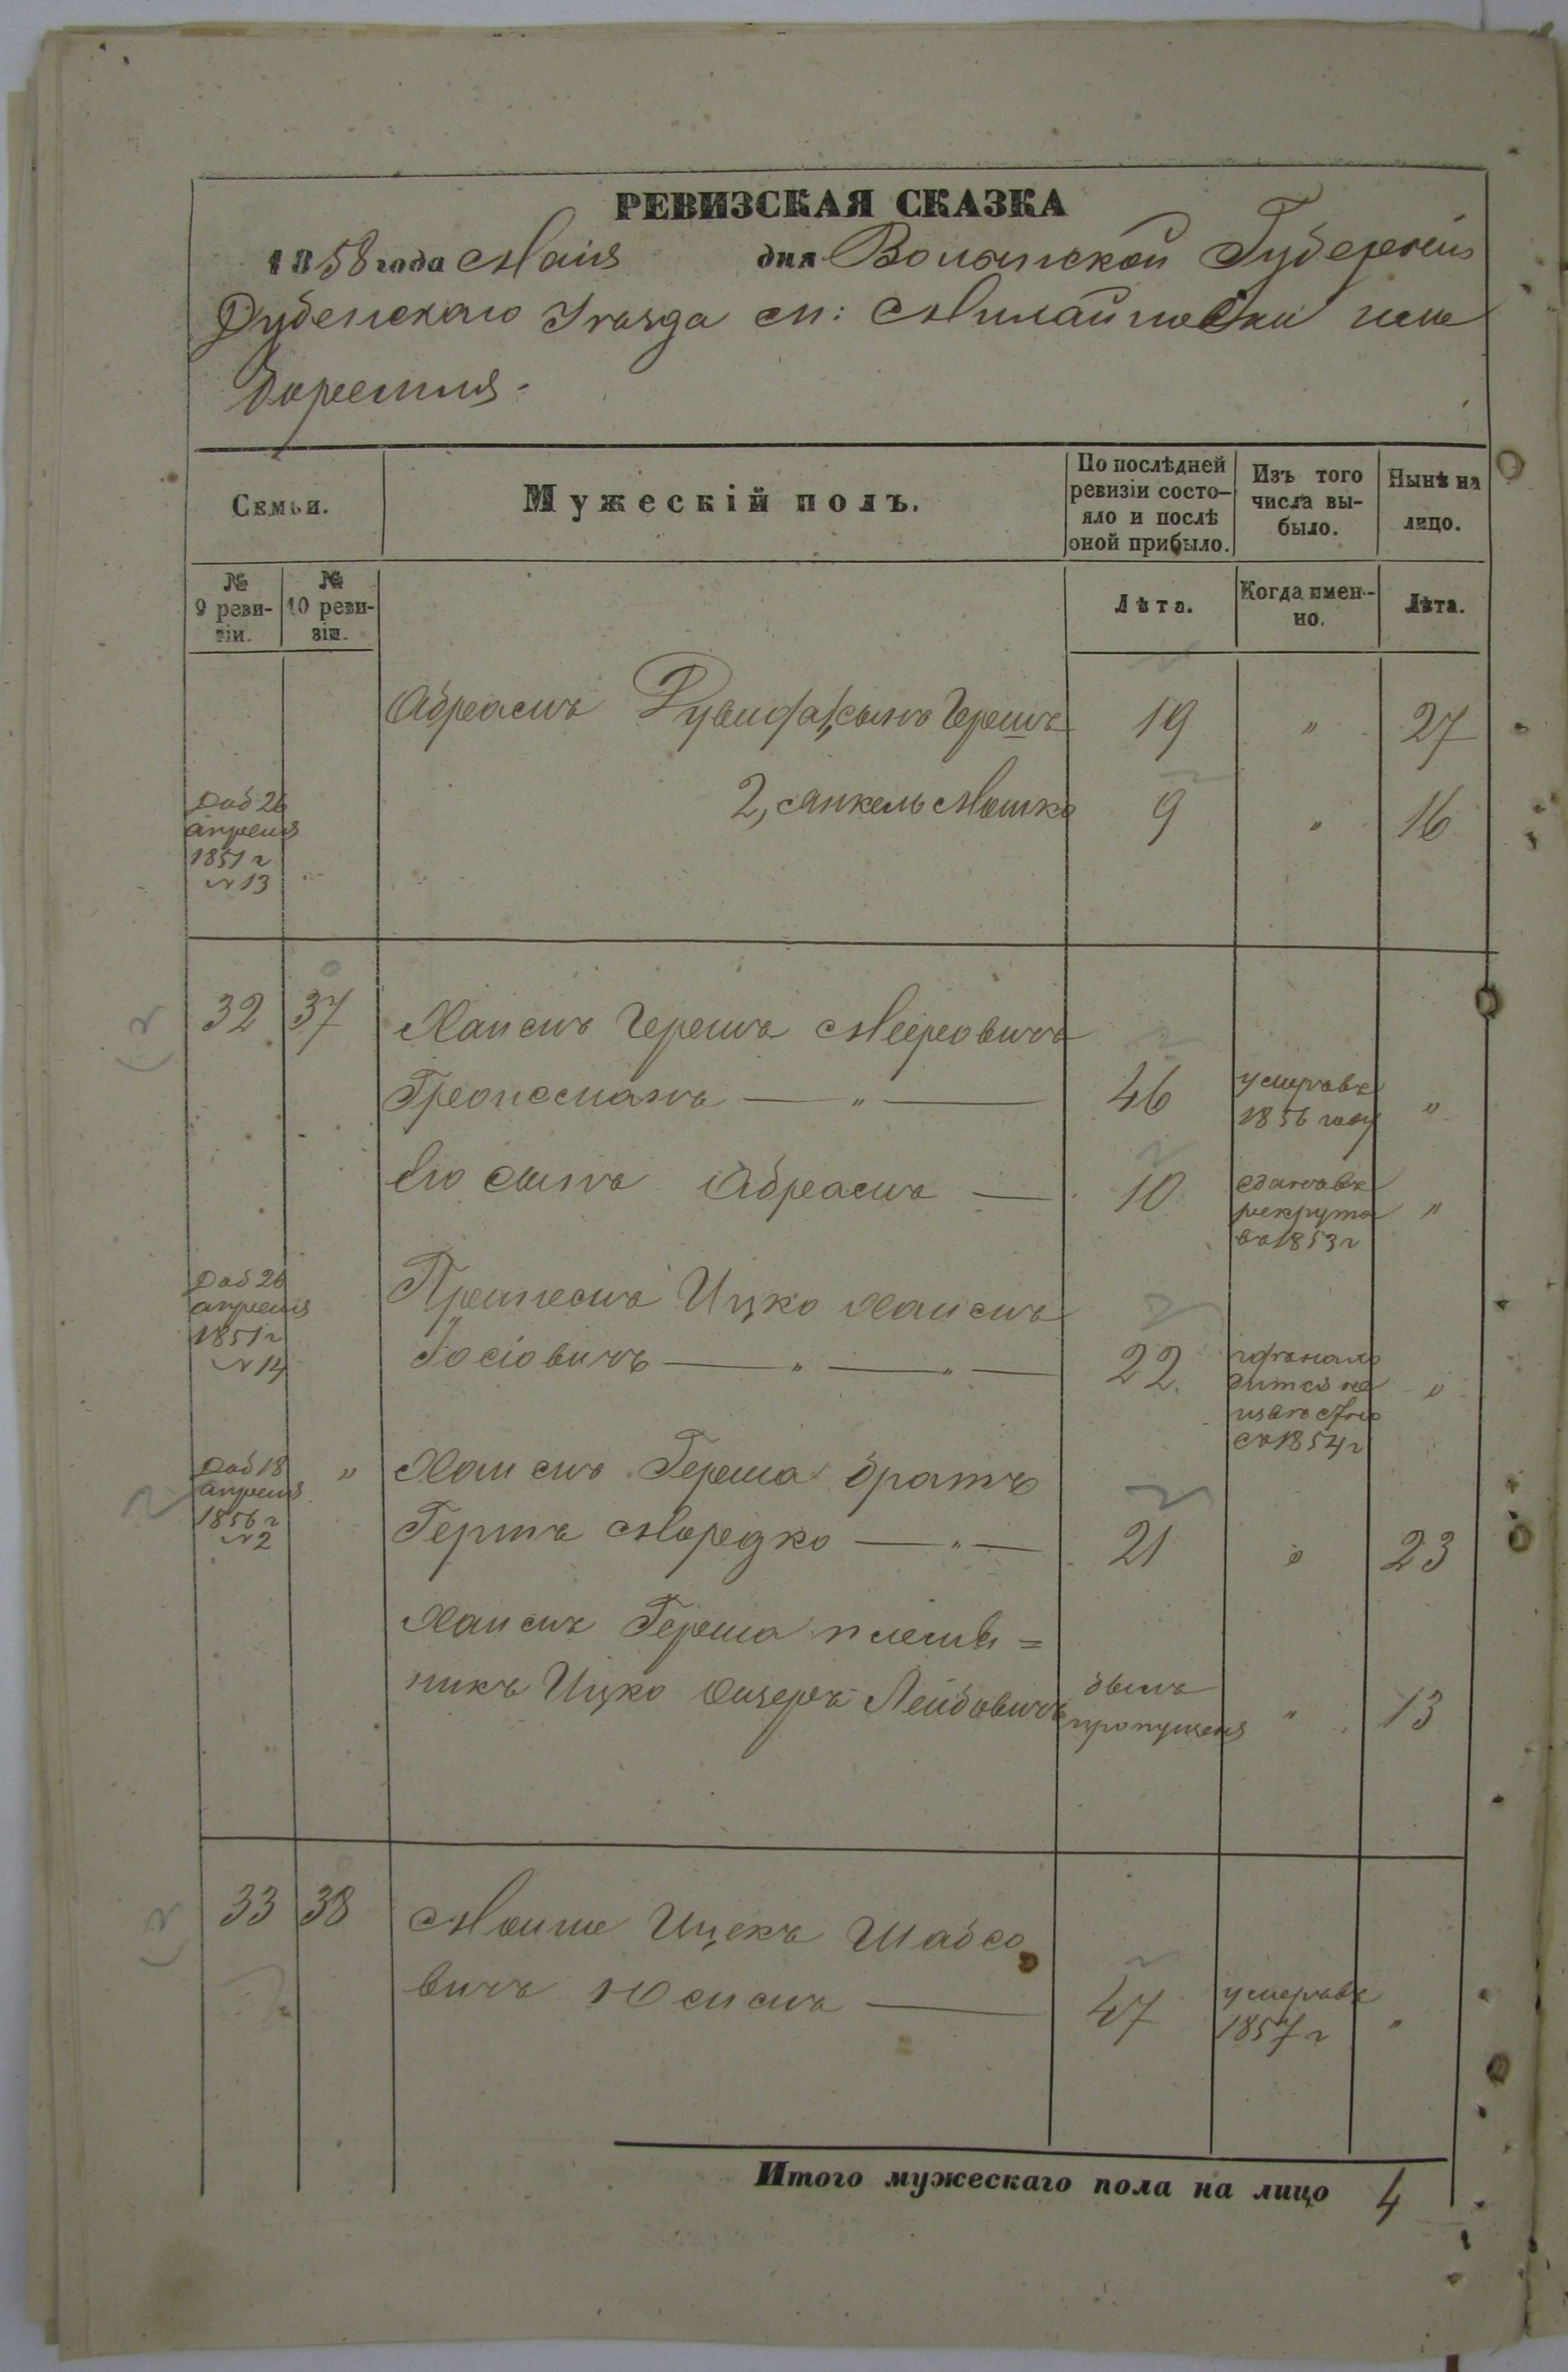 РЕВИЗСКАЯ СКАЗКА
1858 года Маія дня Волынской Губерніи
Дубенскаго Уѣзда м: Михайловки или
Боремля
Семьи.
Мужескій полъ.
По послѣдней ревизіи состо-
яло и послѣ оной прибыло.
Изъ того числа вы-
было.
Нынѣ на лицо.
№ 9 реви-
зіи.
№ 10 реви-
зіи.
Лѣта.
Когда имен-
но.
Лѣта.
Абрамъ сынъ Гершъ 19 " 27
Доб 26 апреля 1851 г №13
2, Янкель Мошко 9 " 16
32 37 Хаимъ Гершъ Мееровичъ
46 умеръ въ 1856 году "
Его сынъ Абрамъ — 10 сданъ въ рекруты въ 1853 г "
Доб 26 апреля 1851 г №14
Ицко Хаимъ
Іосіовичъ — " — " — 22 съ 1854 г "
Доб 18 апреля 1856 г №2
" Хаимъ Герша братъ
Гершъ Мордко — " — 21 " 23
Хаимъ Герша племя=
никъ Ицко Лейбовичъ былъ пропущенъ " 13
33 38 Моише Ицекъ Шабсо
вичъ Юсимъ — 47 умеръ въ 1857 г "
Итого мужескаго пола на лицо 4